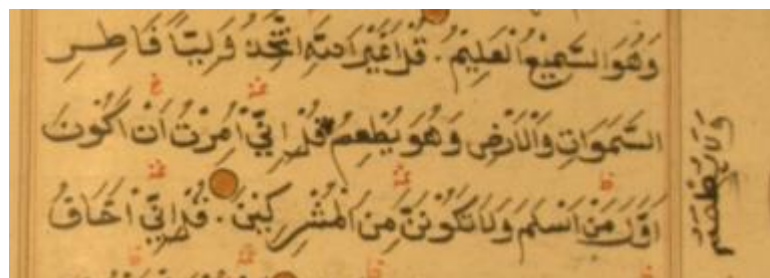 وَهُوَ السَّمِيعُ الْعَلِيمُ . قُلْ اَغَيْرَ اللَّهِ اَتَّخِذُ وَلِيًّا فَاطِرِ
السَّمَوَاتِ وَالْاَرْضِ وَهُوَ يُطْعِمُ قُلْ اِنِّي اُمِرْتُ اَنْ اَكُونَ
اَوَّلَ مَنْ اَسْلَمَ وَلَا تَكُونَنَّ مِنَ الْمُشْرِكِينَ . قُلْ اِنِّي اَخَافُ
وَلَا يُطْعَمُ